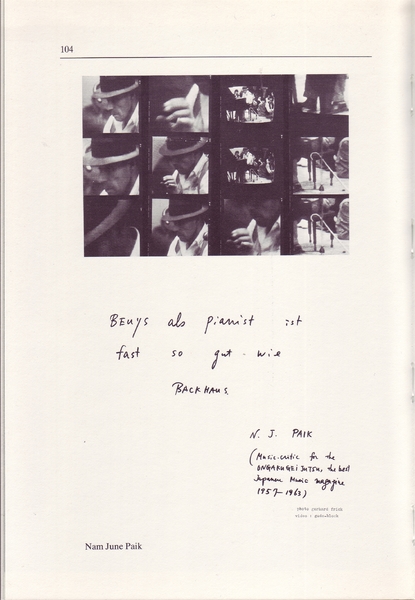 104
BEUYS als pianist ist
fast so gut wie
BACKHAUS.
N. J. PAIK
(Music-critic for the
ONGAKUGEIJUTSU, the best
Japanese Music magazine
1957–1963)
photo
video
Nam June Paik